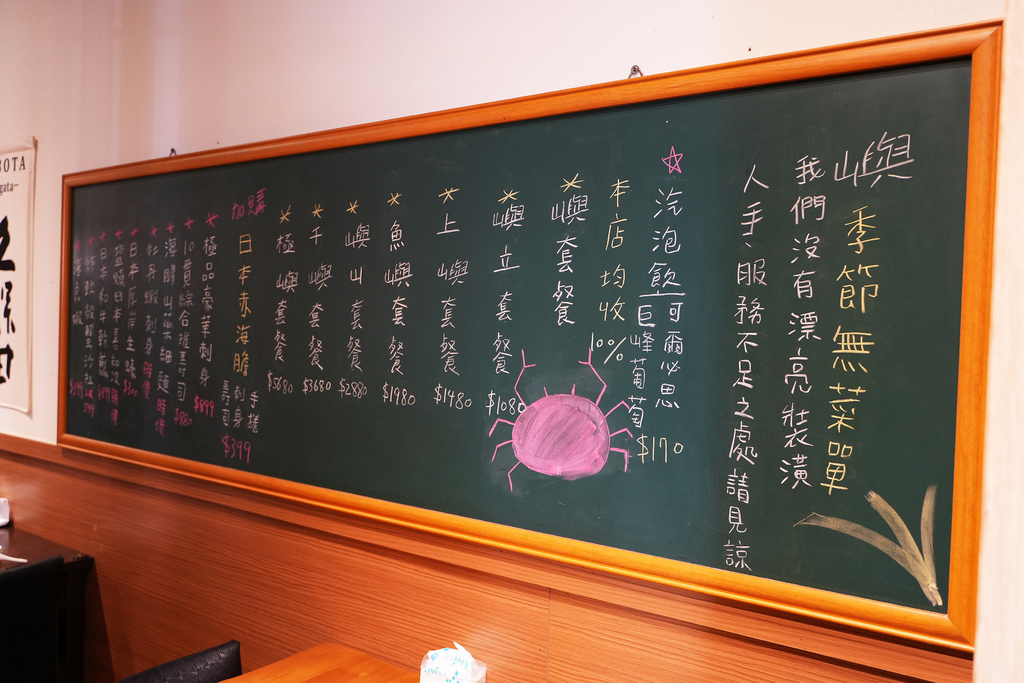 嶼 季節無菜單
我們沒有漂亮裝潢
人手、服務不足之處請見諒
☆汽泡飲 可爾必思 巨峰葡萄 $170
本店均收10%
*嶼套餐
*嶼立套餐 $1080
*上嶼套餐 $1480
*魚嶼套餐 $1980
*嶼山套餐 $2880
*千嶼套餐 $3680
*極嶼套餐 $5680
加購
日本赤海膽 手捲 刺身 壽司 $399
*極品豪華刺身 $899
*10貫綜合握壽司 $880
*海膽山藥細麵 時價
*牡丹蝦刺身 時價
*日本厚岸生蠔 $300
BOTA